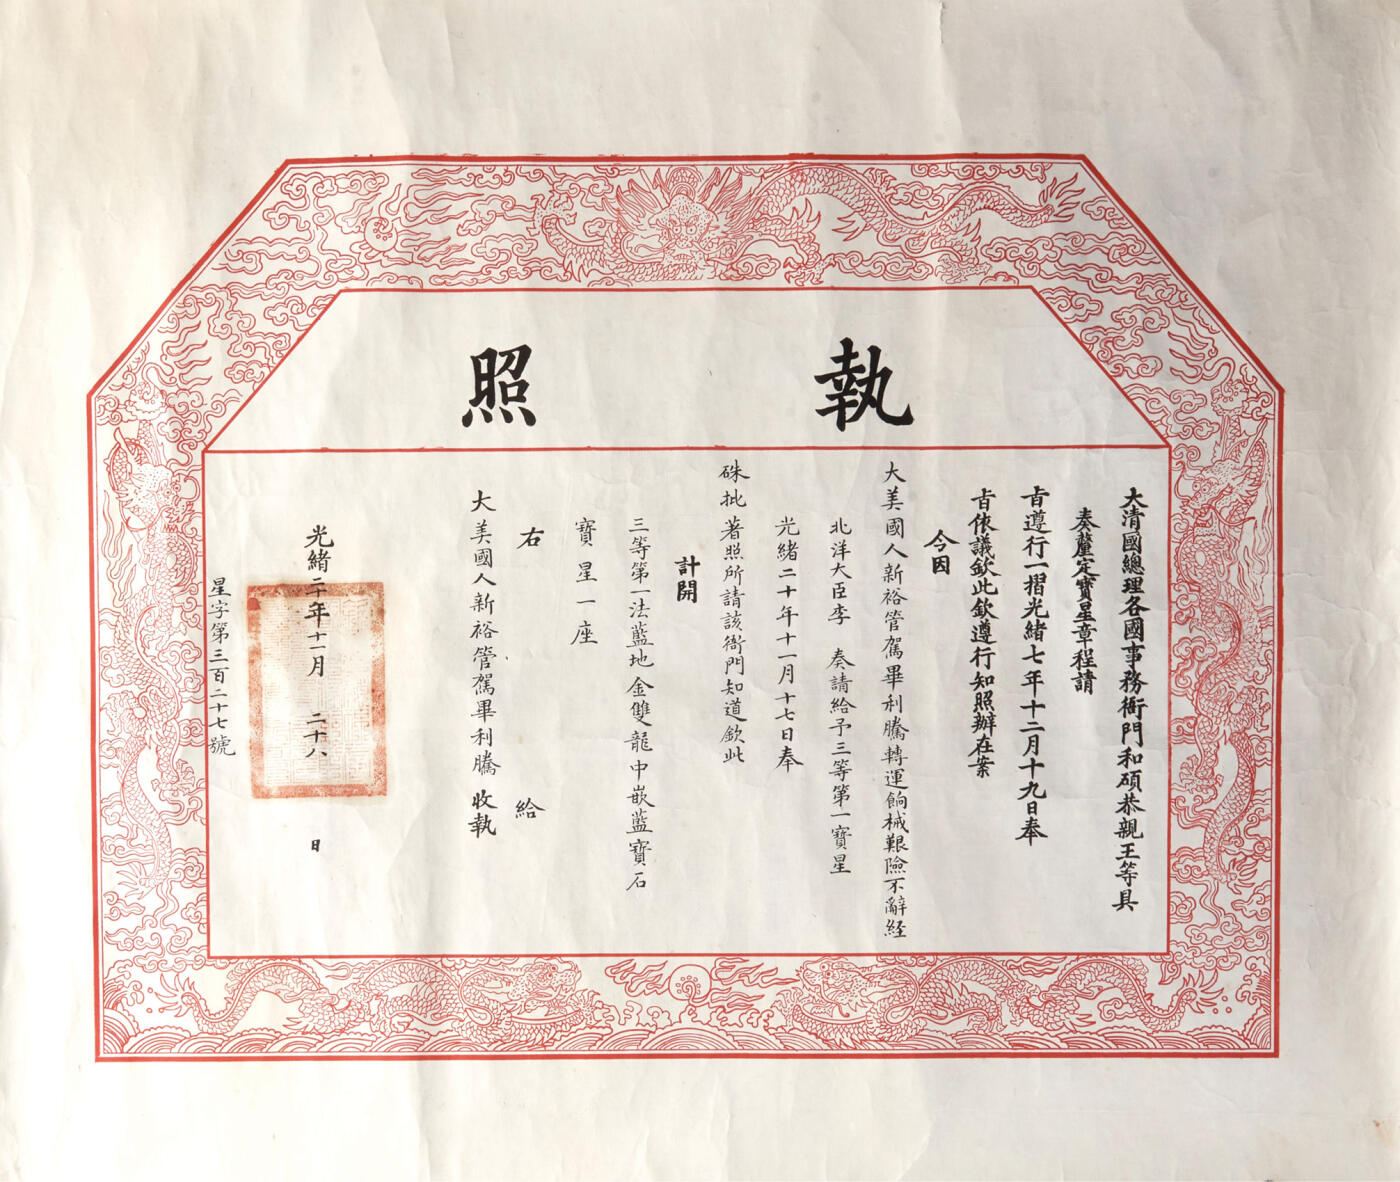 執照
大清國總理各國事務衙門和碩恭親王等具
奏釐定寶星章程請
旨遵行一摺光緒七年十二月十九日奉
旨依議欽此欽遵行知照辦在案
今因
大美國人新裕管駕畢利騰轉運餉械艱險不辭経
北洋大臣李 奏請給予三等第一寶星
光緒二十年十一月十七日奉
硃批著照所請該衙門知道欽此
計開
三等第一法藍地金雙龍中嵌藍寶石
寶星一座
右 給
大美國人新裕管駕畢利騰 收執
光緒二十年十一月 二十八 日
星字第三百二十七號